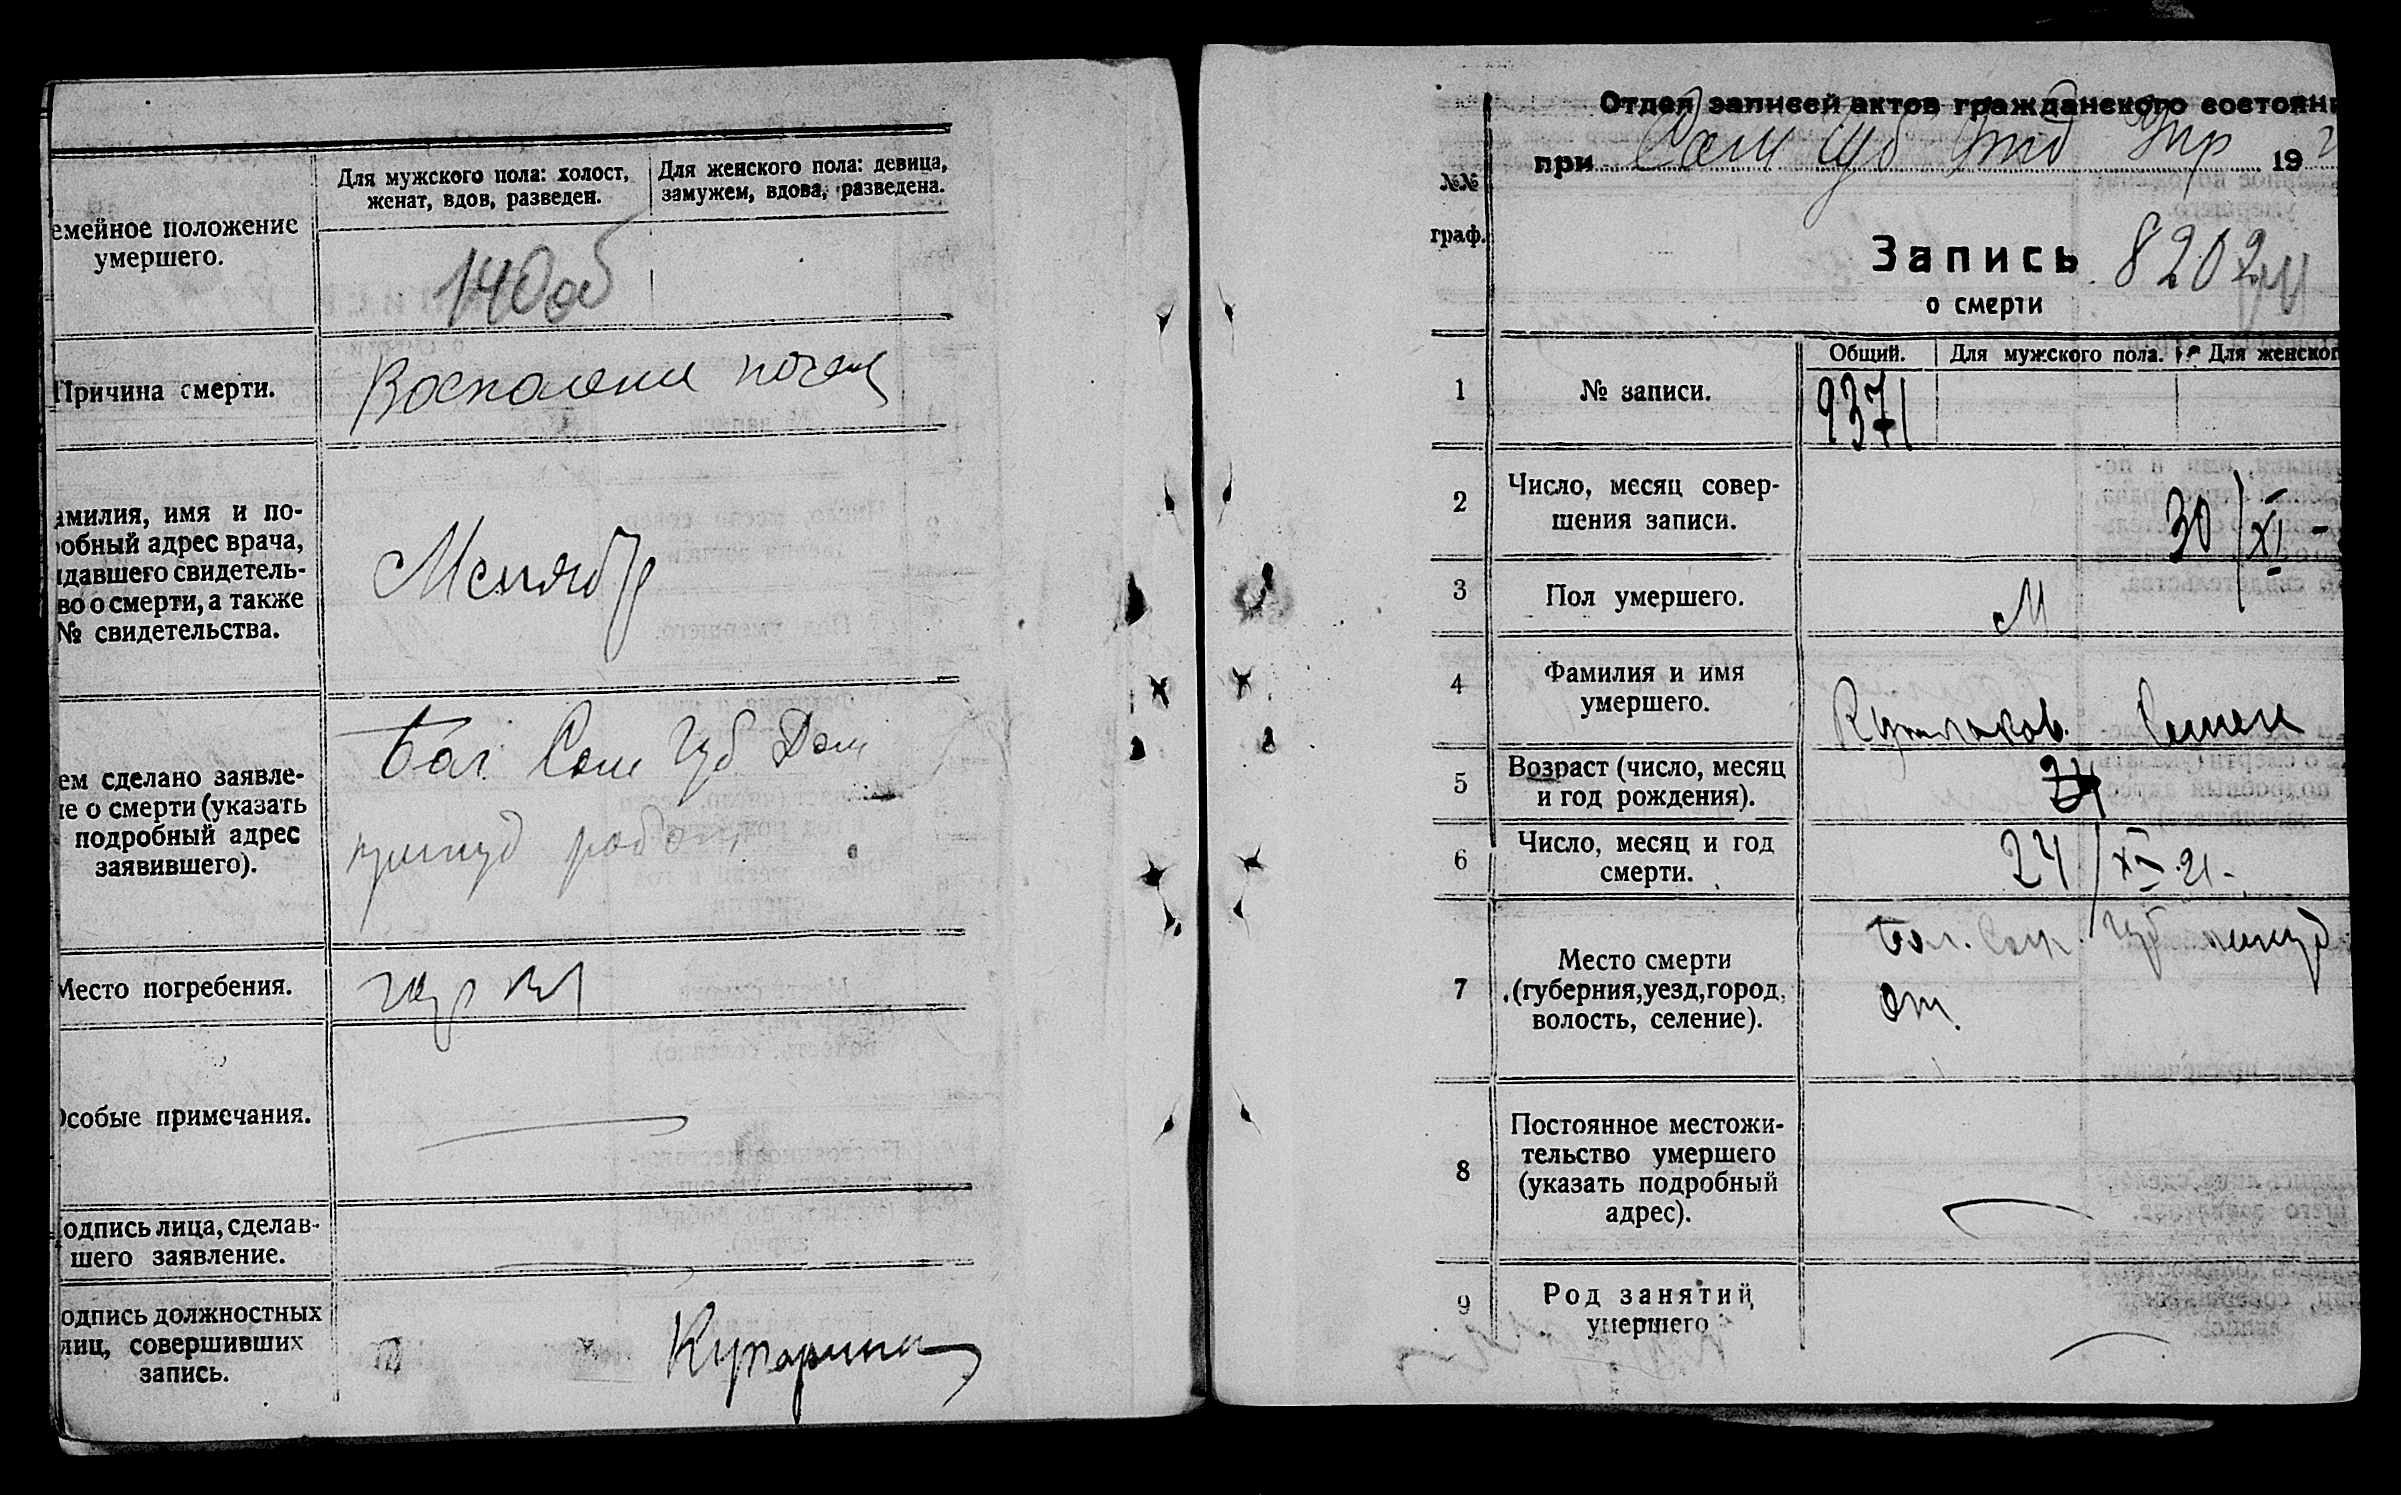 Для мужского пола: холост,
женат, вдов, разведен.
Для женского пола: девица,
замужем, вдова, разведена.
емейное положение
умершего.
Причина смерти.
Воспаление почек
амилия, имя и по-
робный адрес врача,
ыдавшего свидетель-
во о смерти, а также
№ свидетельства.
ем сделано заявле-
ие о смерти (указать
подробный адрес
заявившего).
Бол. Сам Губ Дом
принуд работ
Место погребения.
Особые примечания.
одпись лица, сделав-
шего заявление.
одпись должностных
лиц, совершивших
запись.
Отдел записей актов гражданского состояни
при Сам Губ Отд Упр 19
№№
граф.
Запись 8202
о смерти
Общий. Для мужского пола. Для женског
1 № записи. 9371
2 Число, месяц совер-
шения записи. 30/XI -
3 Пол умершего. М
4 Фамилия и имя
умершего. Семен
5 Возраст (число, месяц
и год рождения).
6 Число, месяц и год
смерти. 24/XI 21-
7 Место смерти
(губерния, уезд, город,
волость, селение).
Бол. Сам. Губ
от.
8 Постоянное местожи-
тельство умершего
(указать подробный
адрес).
9 Род занятий
умершего